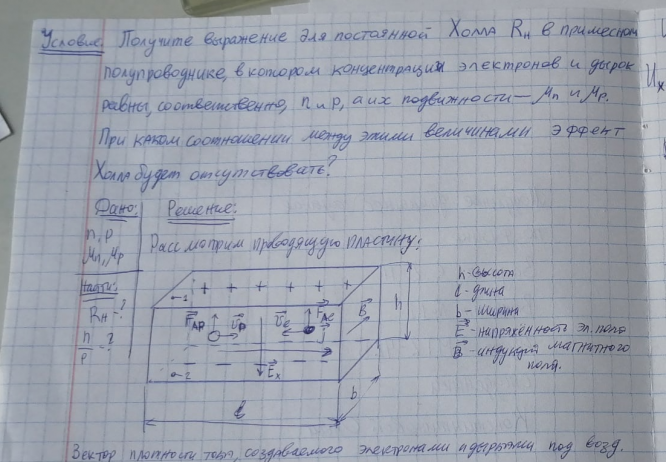 Условие: Получите выражение для постоянной Холла R_H в примесном
полупроводнике, в котором концентрации электронов и дырок
равны, соотвественно, n и p, а их подвижности — μn и μp.
При каком соотношении между этими величинами эффект
Холла будет отсутствовать?
Дано: Решение:
n, p
μn, μp
Рассмотрим проводящую пластину:
Найти:
R_H - ?
n/p - ?
h - высота
l - длина
b - ширина
E - напряжённость эл. поля
B - индукция магнитного
поля.
1 + + + + + +
F_Лp v_p v_e F_Лe B h
j
2 E_x
b
l
Вектор плотности тока, создаваемого электронами и дырками под возд.